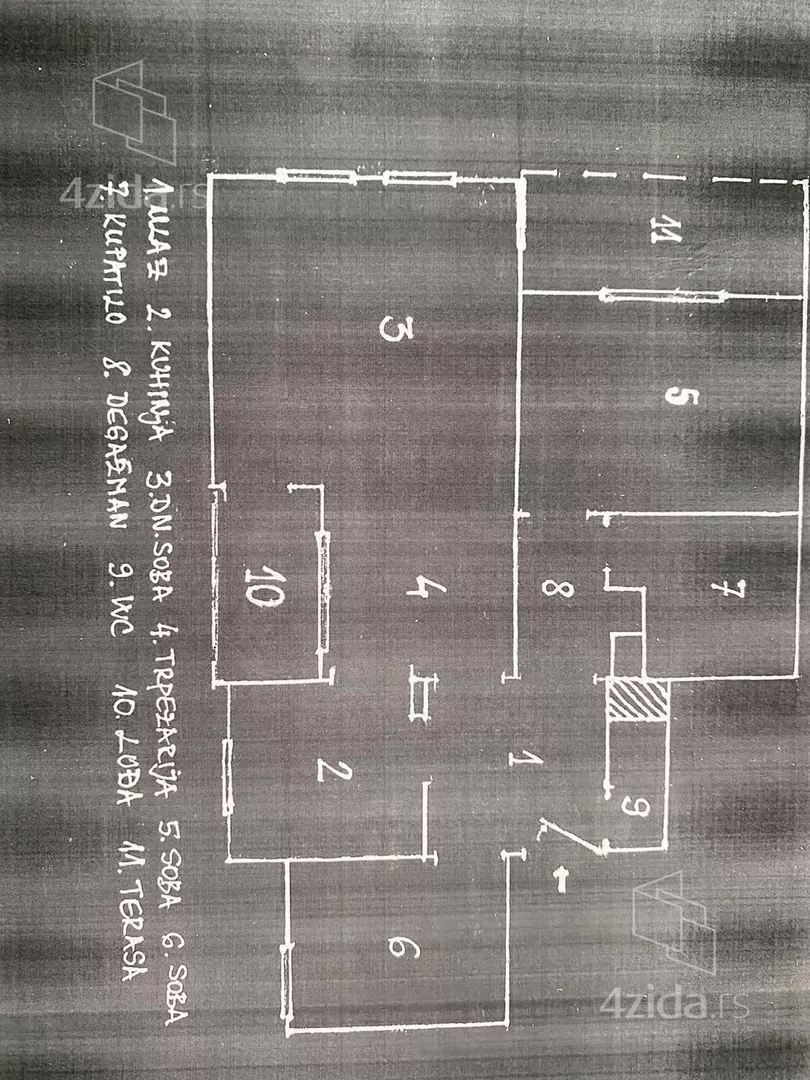 4zida.rs
11
3
5
10
4
8
7
2
1
9
6
1. ULAZ 2. KUHINJA 3. DN. SOBA 4. TRPEZARIJA 5. SOBA 6. SOBA
7. KUPATILO 8. DEGAŽMAN 9. WC 10. LOĐA 11. TERASA
4zida.rs